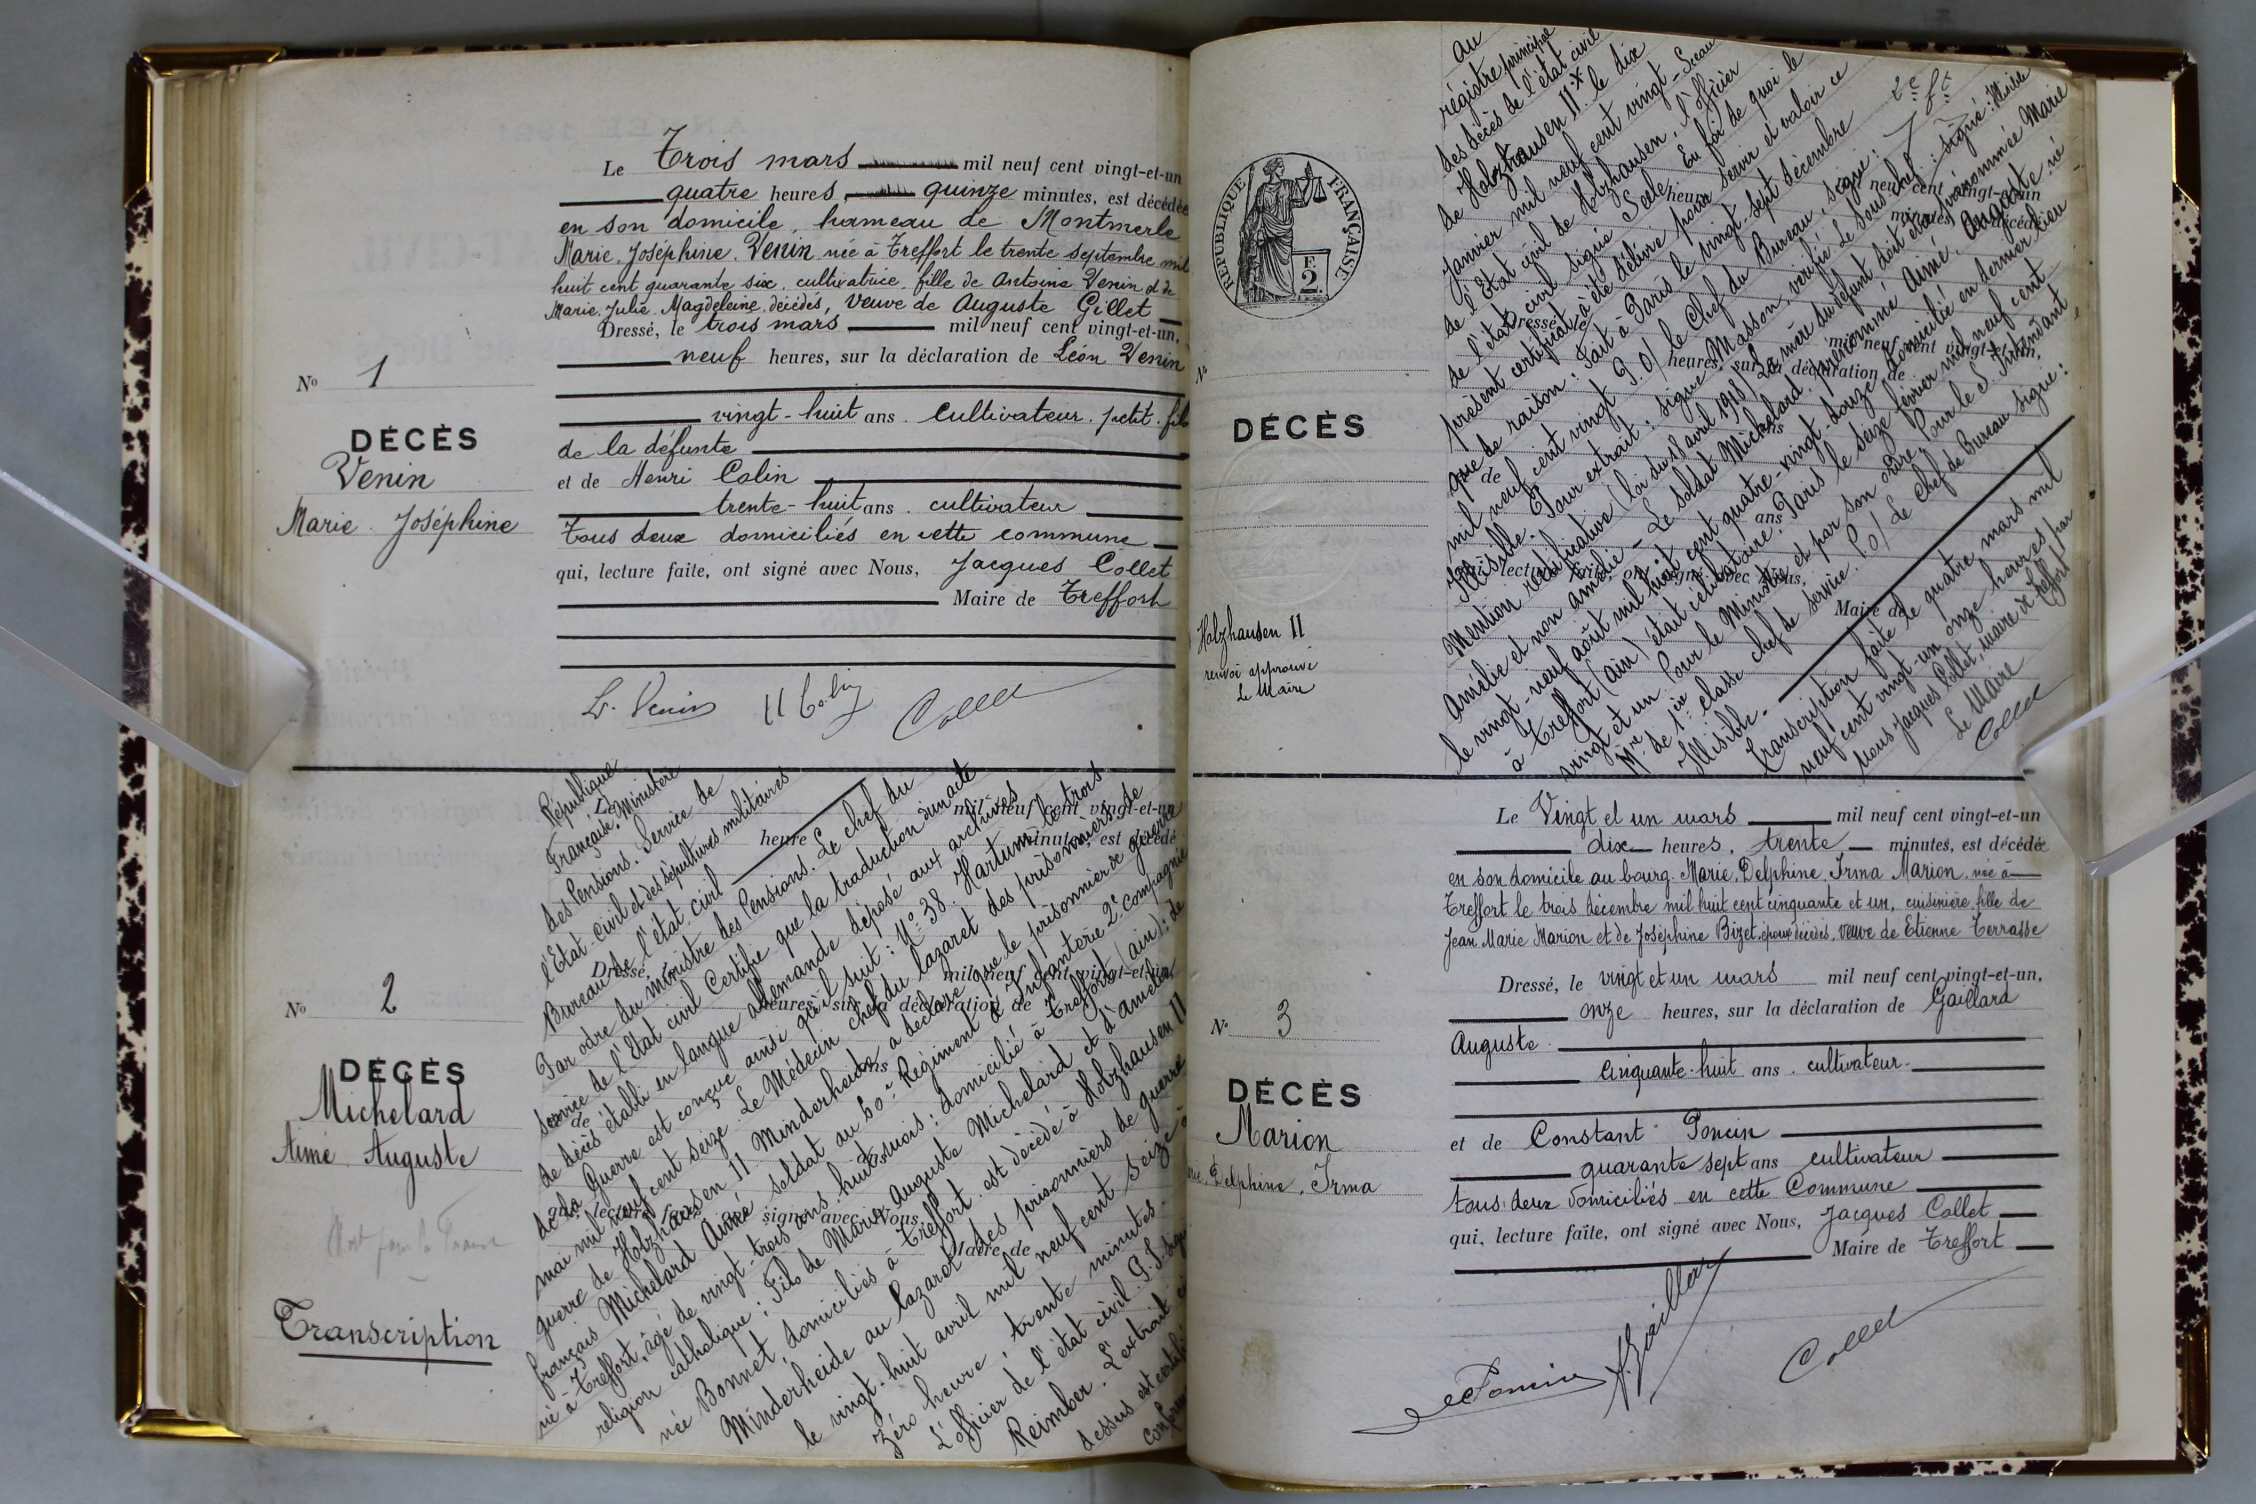 Le Trois mars mil neuf cent vingt-et-un
quatre heures, quinze minutes, est décédée
en son domicile, hameau de Montmerle
Marie, Joséphine, Venin née à Treffort le trente septembre mil
huit cent quarante six, cultivatrice, fille de Antoine Venin et de
Marie, Julie, Magdeleine, décédés, veuve de Auguste Gillet
Dressé, le trois mars mil neuf cent vingt-et-un,
neuf heures, sur la déclaration de Léon Venin
vingt-huit ans. cultivateur, petit-fils
de la défunte
et de Henri Colin
trente-huit ans. cultivateur
Tous deux domiciliés en cette commune
qui, lecture faite, ont signé avec Nous, Jacques Collet
Maire de Treffort
No 1
DÉCÈS
Venin
Marie. Joséphine
L. Venin H Colin Collet
No 2
DÉCÈS
Michelard
Aimé Auguste
Mort pour la France
Transcription
République
Française. Ministère
des Pensions. Service de
l'Etat-civil et des sépultures militaires
Bureau de l'état civil
Par odre du ministre des Pensions. Le chef du
service de l'Etat civil certifie que la traduction d'un acte
de décès établi en langue allemande déposé aux archives
de la Guerre est conçue ainsi qu'il suit: No 38. Hartum le trois
mai mil neuf cent seize. Le Médecin chef du lazaret des prisonniers de
guerre de Holzhausen II Minderheide a déclaré que le prisonnier de guerre
français Michelard Aimé soldat au 60e Régiment d'Infanterie 2e compagnie
né à Treffort, âgé de vingt-trois ans huit mois; domicilié à Treffort (ain); de
religion catholique; Fils de Marie Auguste Michelard et d'Amélie
née Bonnet, domiciliés à Treffort, est décédé à Holzhausen II
Minderheide au lazaret des prisonniers de guerre
le vingt-huit avril mil neuf cent seize à
zéro heure, trente minutes.
L'officier de l'état civil. P. J. signé
Reimber. L'extrait ci
dessus est certifié
conforme
au
régistre principal
des décès de l'état civil
de Holzhausen II x le dix
Janvier mil neuf cent vingt-Sceau
de l'Etat civil de Holzhausen, l'officier
de l'état civil signé Scele En foi de quoi le
présent certificat a été délivré pour servir et valoir ce
que de raison: Fait à Paris le vingt-sept décembre
mil neuf cent vingt P.O/ le Chef du Bureau, signé:
Illisible. Pour extrait: signé Masson, vérifié Le Sous chef: signé: Illisible
Mention rectificative (loi du 18 avril 1918) La mère du défunt doit être prénommée Marie
Amélie et non Amélie - Le soldat Michelard, prénommé Aimé, Auguste né
le vingt-neuf août mil huit cent quatre-vingt-douze domicilié en dernier lieu
à Treffort (ain) était célibataire. Paris le seize février mil neuf cent
vingt et un Pour le Ministre et par son ordre, Pour le S. Intendant
Mre de 1ère classe chef de service. P.O/ Le chef de Bureau signé:
Illisible.
Transcription faite le quatre mars mil
neuf cent vingt-un onze heures par
nous Jacques Collet, maire de Treffort
Le Maire
Collet
2e ft
RÉPUBLIQUE FRANÇAISE
F.
2.
No
DÉCÈS
Holzhausen II
renvoi approuvé
Le Maire
Le Vingt et un mars mil neuf cent vingt-et-un
dix heures, trente minutes, est décédée
en son domicile au bourg. Marie, Delphine, Irma Marion, née à
Treffort le trois décembre mil huit cent cinquante et un, cuisinière, fille de
Jean Marie Marion et de Joséphine Bizet, époux décédés, veuve de Etienne Terrasse
Dressé, le vingt et un mars mil neuf cent vingt-et-un,
onze heures, sur la déclaration de Gaillard
Auguste
cinquante-huit ans. cultivateur
et de Constant Poncin
quarante sept ans cultivateur
tous deux domiciliés en cette Commune
qui, lecture faite, ont signé avec Nous, Jacques Collet
Maire de Treffort
No 3
DÉCÈS
Marion
Delphine, Irma
Poncin A. Gaillard Collet